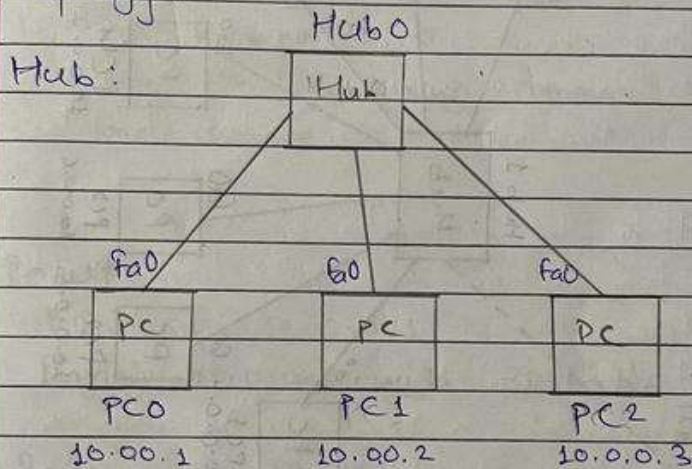 Hub0
Hub:
Hub
Fa0 Fa0 Fa0
PC PC PC
PC0 PC1 PC2
10.00.1 10.00.2 10.0.0.3